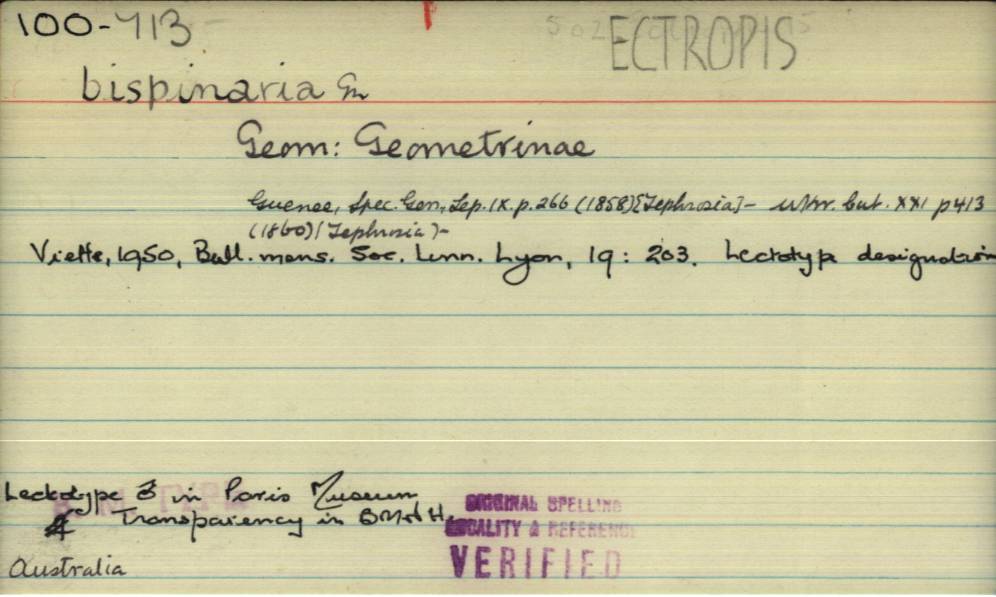 100-713
ECTROPIS
bispinaria Gn
Geom: Geometrinae
Guenee, Spec. Gen. Lep. IX. p. 266 (1858) [Tephrosia] - Wkr. Cat. XXI p 413
(1860) (Tephrosia) -
Viette, 1950, Bull. mens. Soc. Linn. Lyon, 19: 203. Lectotyp designation
Lectotype ♂ in Paris Museum
& Transparency in BMNH.
Australia
ORIGINAL SPELLING
LOCALITY & REFERENCE
VERIFIED